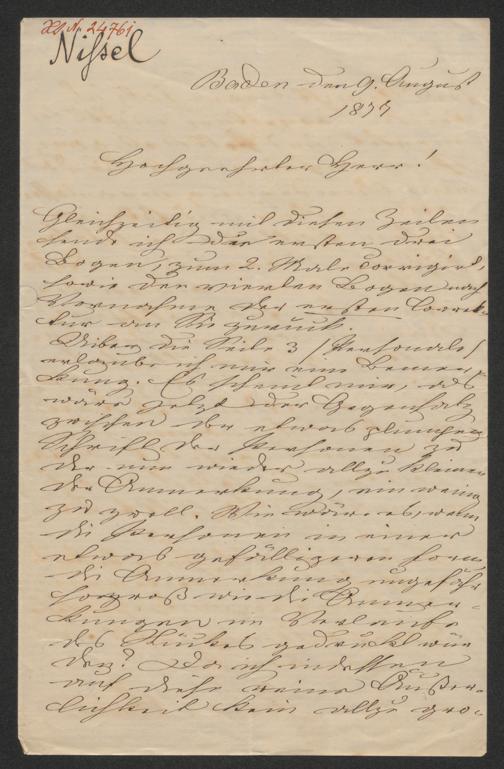 Nissel
Baden den 9. August
1877
Hochgeehrter Herr!
Gleichzeitig mit diesen Zeilen
sende ich die ersten drei
Bogen, zum 2. Male corrigirt,
sowie den vierten Bogen nach
Vornahme der ersten Correk-
tur an Sie zurück.
Ueber die Seite 3 /Personale/
erlaube ich mir eine Bemer-
kung. Es scheint mir, als
wäre jetzt der Gegensatz
zwischen der etwas plumpen
Schrift der Personen zu
der nun wieder allzu kleinen
der Anmerkung, ein wenig
zu grell. Wie wäre es, wenn
die Personen in einer
etwas gefälligeren Form
die Anmerkung ungefähr
so groß wie die Anmer-
kungen im Verlaufe
des Stückes gedruckt wür
den? Da ich indessen
auf diese reine Äußer-
lichkeit kein allzu gro-